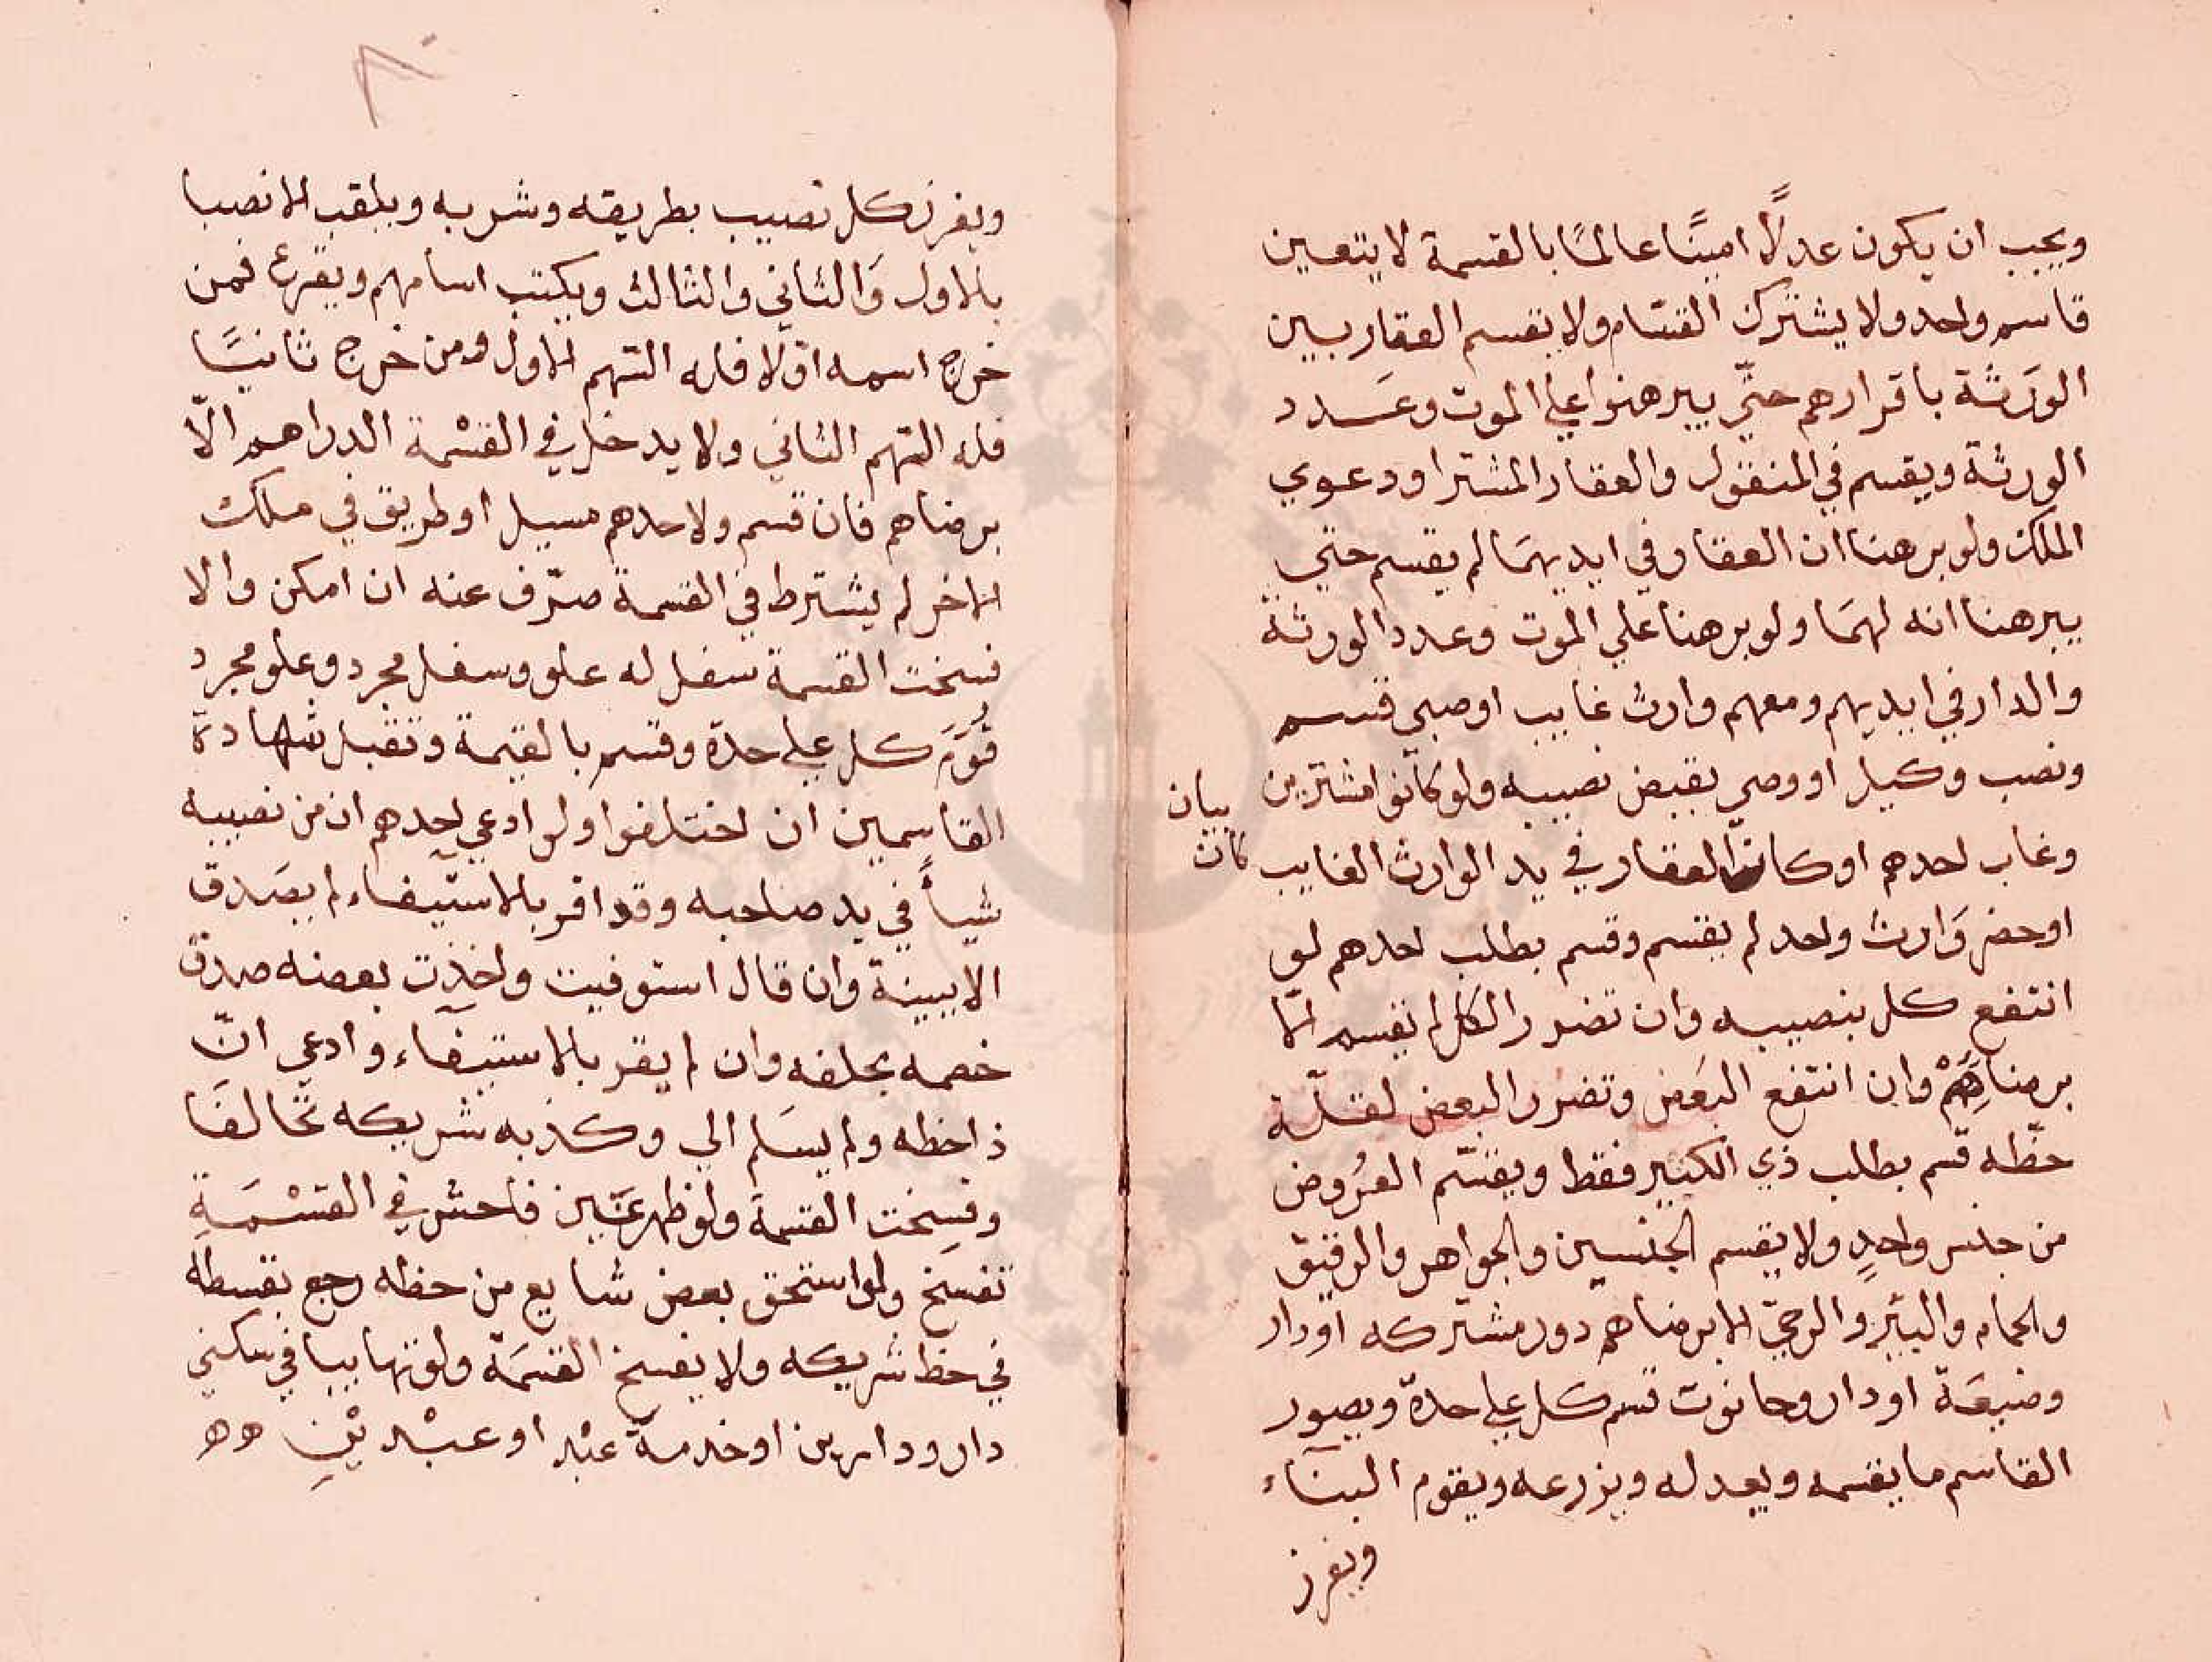 ويجب ان يكون عدلًا امينًا عالمًا بالقسمة لا يتعين
قاسم واحد ولا يشترك القسّام ولا يقسم العقار بين
الوَرَثة باقرارهم حتّي يبرهنوا علي الموت وعَدد
الورثة ويقسم في المنقول والعقار المشترا ودعوي
الملك ولو برهنا ان العقار في ايديهمَا لم يقسم حتي
يبرهنا انه لهمَا ولو برهنا علي الموت وعدد الورثة
والدار في ايديهم ومعهم وارث غايب او صبي قسم
ونصب وكيل او وصي يقبض نصيبه ولو كانوا مشترين
وغاب احدهم او كان العقار في يد الوارث الغايب
بيان
كان
او حضر وَارث واحد لم يقسم وقسم بطلب احدهم لو
انتفع كل بنصيبه وان تضرر الكل لم يقسم الّا
برضاهِمْ وان انتفع البَعض وتضرر البعض لقلّة
حظّه قسم بطلب ذي الكثير فقط ويقسّم العُروض
من جنس واحدٍ ولا يقسم الجنسين والجواهر والرقيق
والحمام والبئر والرحيّ الا برضاهم دور مشتركه او دار
وضيعَة او دار وحانوت قسم كل علي حدة ويصور
القاسم ما يقسمه ويعدله ويزرعه ويقوم البنآء
ويفرز
٨٠
ويفرز كل نصيب بطريقه وشربه ويلقب الانصبا
بالاول وَالثاني والثالث ويكتب اسامهم ويقرع فمن
خرج اسمه اوّلا فله السّهم الاول ومن خرج ثانيًا
فله السّهم الثاني ولا يدخل في القسْمة الدراهم الّا
برضاهم فان قسم ولاحدهم مسيل او طريق في ملك
الاخر لم يشترط في القسمة صرّف عنه ان امكن والا
فسخت القسمة سفل له علو وسفل مجرد وعلو مجرد
قُوِّمَ كل علي حدة وقسم بالقيمة وتقبل شهادة
القاسمين ان اختلفوا ولو ادعي احدهم ان من نصيبه
شيأً في يد صاحبه وقد اقر بالاستيفاء لم يصَدق
الا ببينة وان قال استوفيت واخذت بعضه صدق
خصمه بحلفه وان لم يقر بالاستيفاء وادعي انّ
ذا حظه ولم يسَلم الي وكذبه شريكه تحَالفَا
وفسِخت القسمة ولو ظهر غبن فاحش في القسْمَةِ
تفسخ ولو استحق بعض شايع من حظه رجع بقسطه
في حظ شريكه ولا يفسخ القسمَة ولو تهاييا في سكني
دار ودارين او خدمة عبْد او عبْديْنِ هه